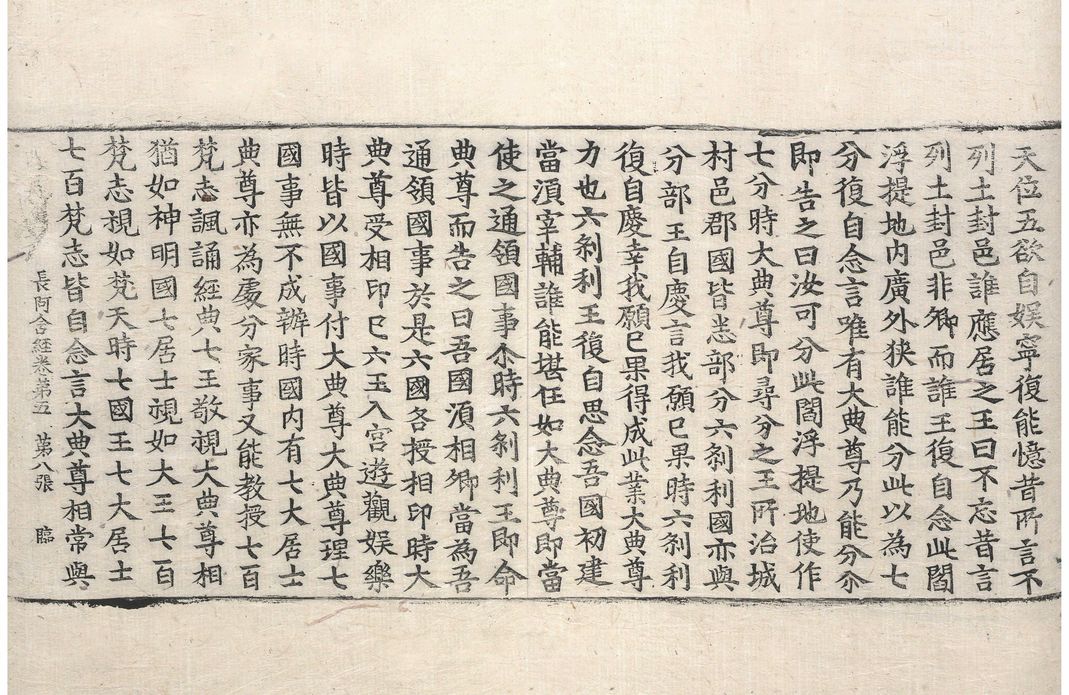 天位五欲自娛寧復能憶昔所言不
列土封邑誰應居之王曰不忘昔言
列土封邑非卿而誰王復自念此閻
浮提地内廣外狹誰能分此以為七
分復自念言唯有大典尊乃能分尒
即告之曰汝可分此閻浮提地使作
七分時大典尊即尋分之王所治城
村邑郡國皆悉部分六刹利國亦與
分部王自慶言我願已果時六刹利
復自慶幸我願已果得成此業大典尊
力也六刹利王復自思念吾國初建
當湏宰輔誰能堪任如大典尊即當
使之通領國事尒時六刹利王即命
典尊而告之曰吾國湏相卿當為吾
通領國事於是六國各授相印時大
典尊受相印已六王入宮遊觀娛樂
時皆以國事付大典尊大典尊理七
國事無不成辦時國内有七大居士
典尊亦為處分家事又能教授七百
梵志諷誦經典七王敬視大典尊相
猶如神明國七居士視如大王七百
梵志視如梵天時七國王七大居士
七百梵志皆自念言大典尊相常與
長阿含經卷第五 第八張 臨